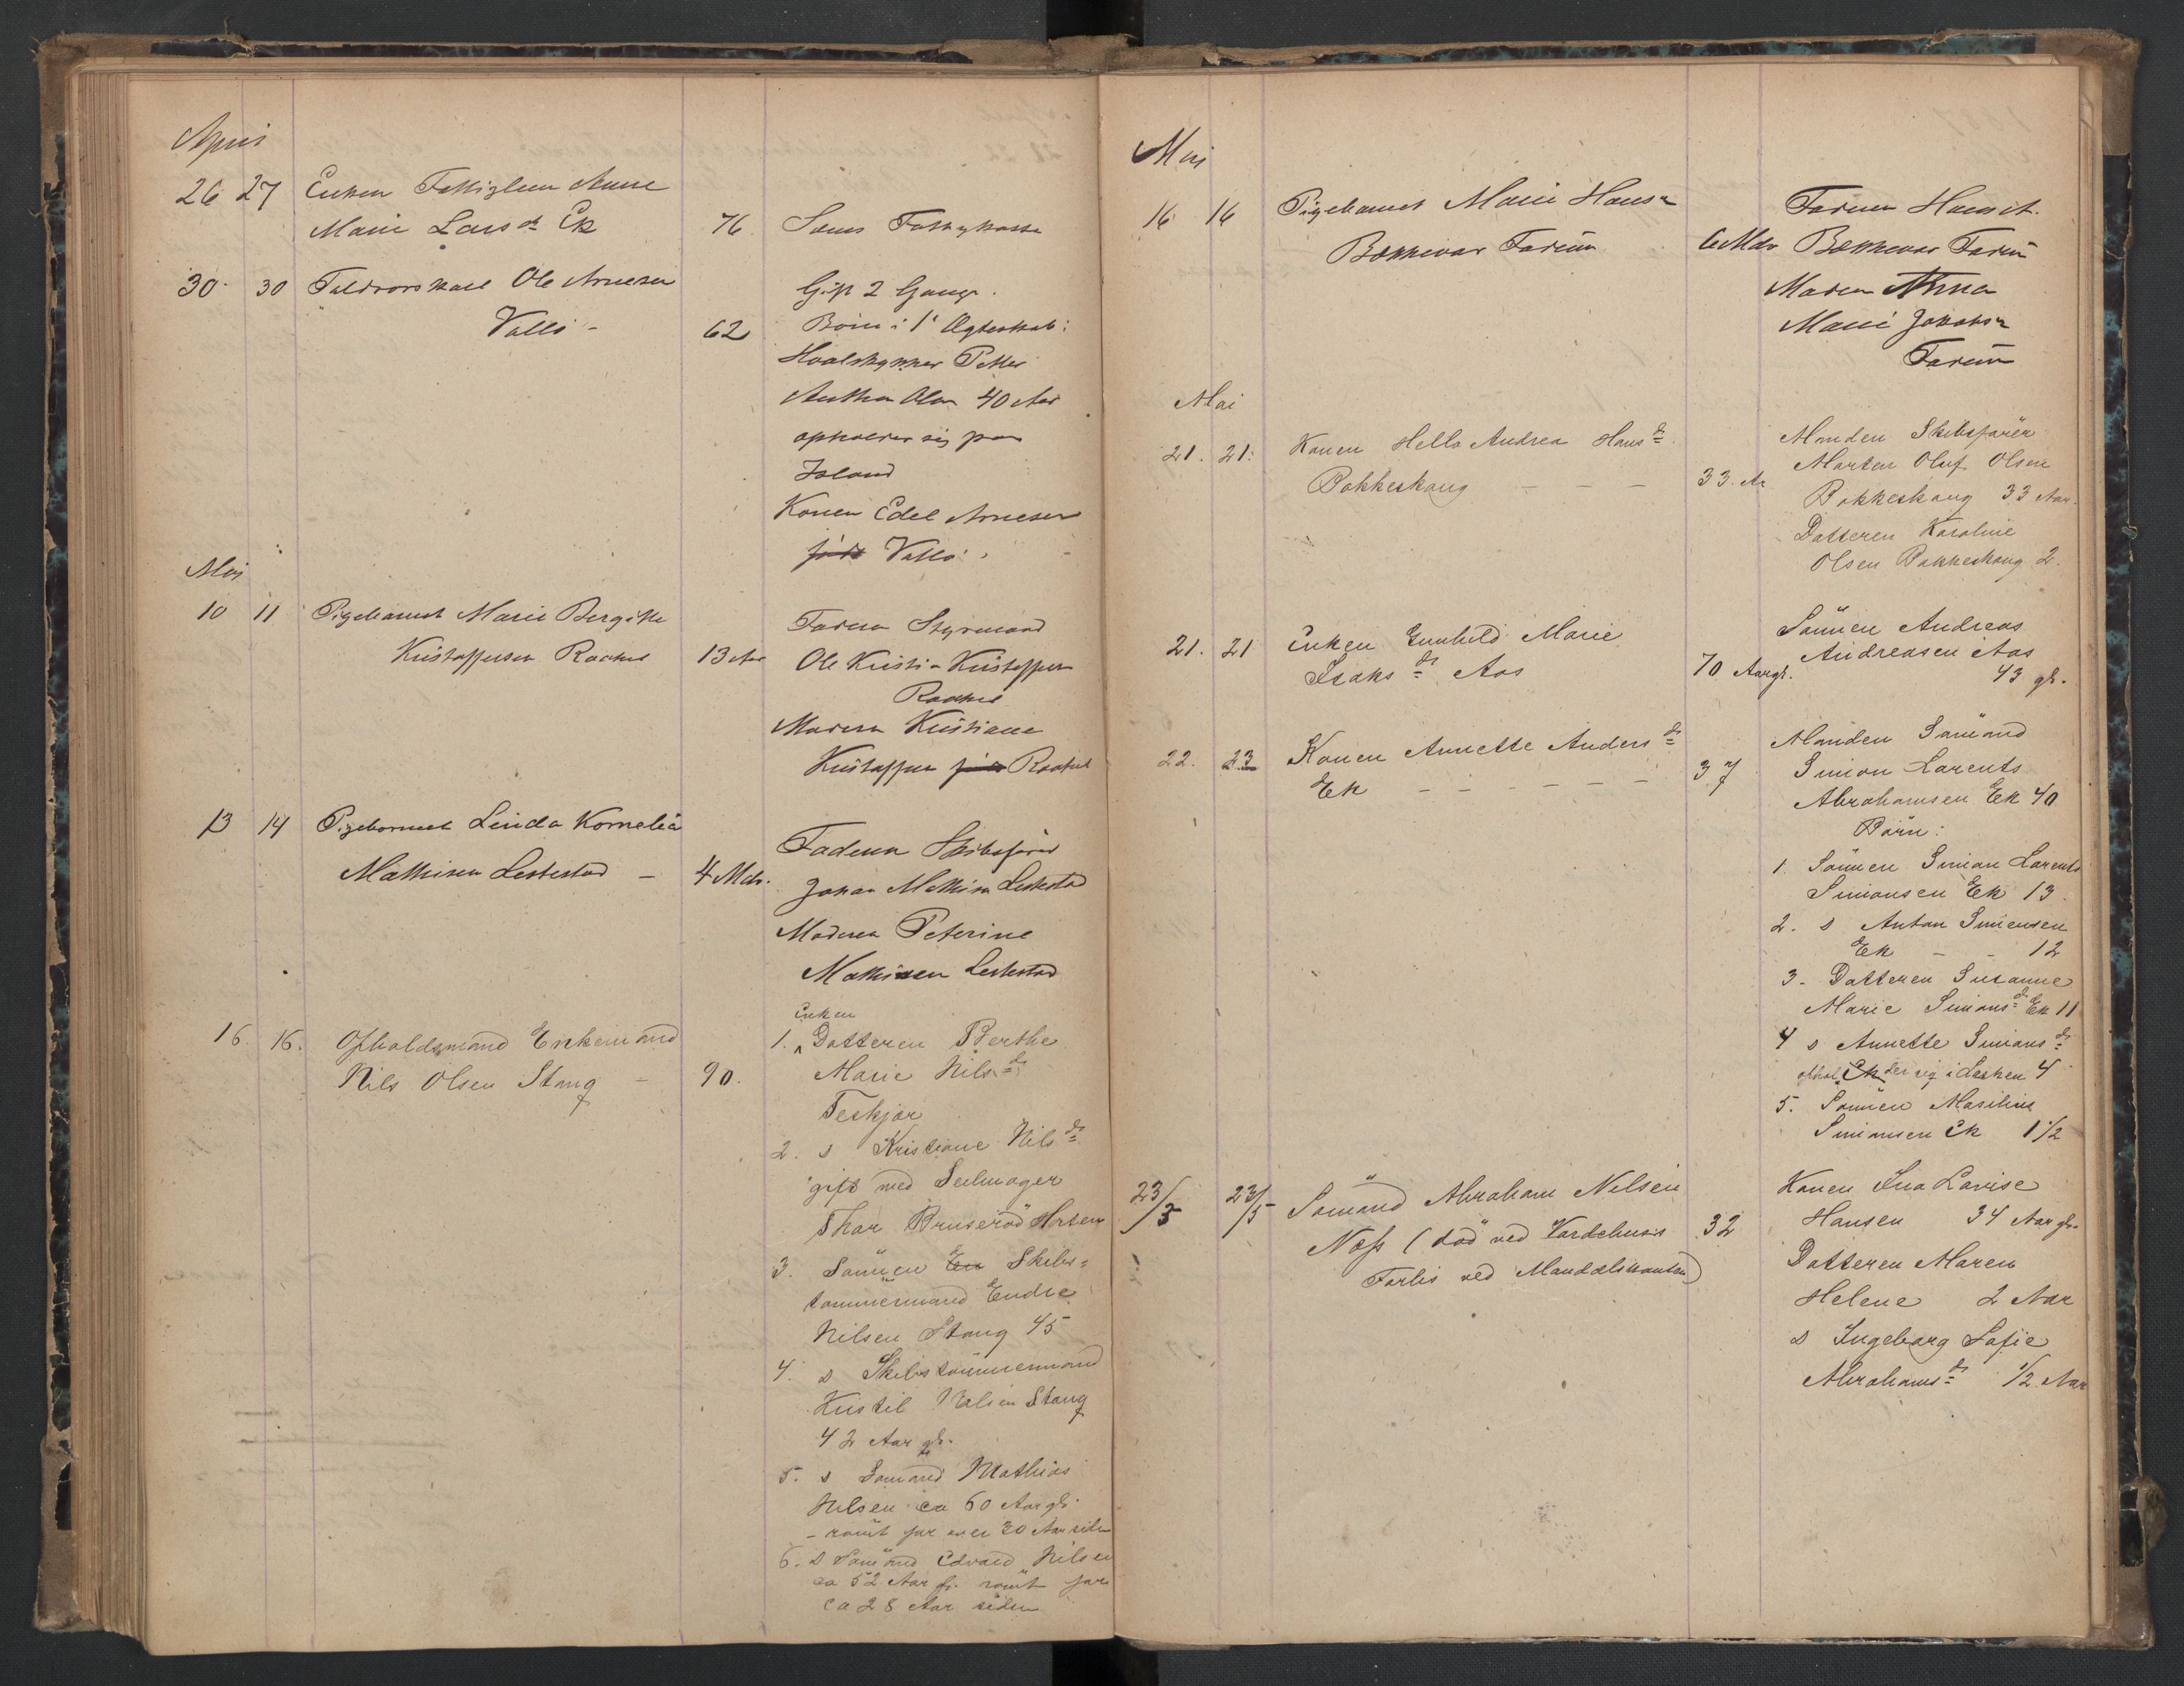 April
26 27 Enken Fattiglem Anne
Marie Lars d: Ek 76. Sems Fattigkasse
30. 30 Ole Arnesen
Vallö - 62
Gift 2 Gange.
Börn i 1e Ægteskab:
Petter
Anthon Olsen 40 Aar
opholder sig paa
Island
Konen Edel Arnesen
Vallö.
Mai
10 11 Pigebarnet Marie Bergitte
Kristoffersen Rakkes 13 Aar
Faderen Styrmand
Ole Kristi - Kristoffersen
Moderen Kristiane
Kristoffersen
13 14 Pigebarnet Linda Kornelia
Mathisen Lestestad - 4 Mdr.
Faderen Skibsfører
Johan Mathisen Lestestad
Moderen Peterine
Mathisen Lestestad
16. 16. Opholdsmand Enkemand
Nils Olsen Stang - 90.
Enken
1. Datteren Berthe
Marie Nils d:
Teskjær
2. s Kristiane Nils d:
gift med Seilmager
Thor Bruserød Horten
3. Sønnen Skibs=
tømmermand Endre
Nilsen Stang 45
4. s Skibstømmermand
Kristil Nilsen Stang
42 Aar gl.
5. s Sømand Mathias
Nilsen ca 60 Aar gl.
- rømt for over 30 Aar siden
6. s Sømand Edvard Nilsen
ca 52 Aar gl. rømt for
ca 28 Aar siden
Mai
16 16 Pigebarnet Marie Hans n
Bekkevar Farein 6 Mdr
Faderen Hans
Bekkevar Farein
Moder Anna
Marie Jakobs n
Farein
Mai
21. 21. Konen Hella Andrea Hans d:
Bakkeskaug - - - 33. Ar
Manden Skibsfører
Morten Oluf Olsen
Bakkeskaug 33 Aar.
Datteren Karoline
Olsen Bakkeskaug 2.
21. 21 Enken Gunhild Marie
Isaks d: Aas 70 Aar gl.
Sønnen Andreas
Andreasen Aas
43 gl.
22. 23 Konen Annette Anders d:
Ek - - - - - - 37
Manden Sømand
Simon Larents
Abrahamsen Ek 40
Børn:
1. Sønnen Simon Larents
Simonsen Ek 13.
2. s Anton Simonsen
Ek - - 12
3. Datteren Susanne
Marie Simons d: Ek 11
4 s Annette Simons d:
ophol Ek der sig i Lesken 4
5. Sønnen Masilius
Simonsen Ek 1 1/2
23/5 23/5 Sømand Abraham Nilsen
Næss (død ved Vardehuus 32
Forlis ved Mandalskanten)
Konen Ina Lovise
Hansen 34 Aar gl.
Datteren Maren
Helene 2 Aar
s Ingeborg Sofie
Abrahams d: 1/2 Aar